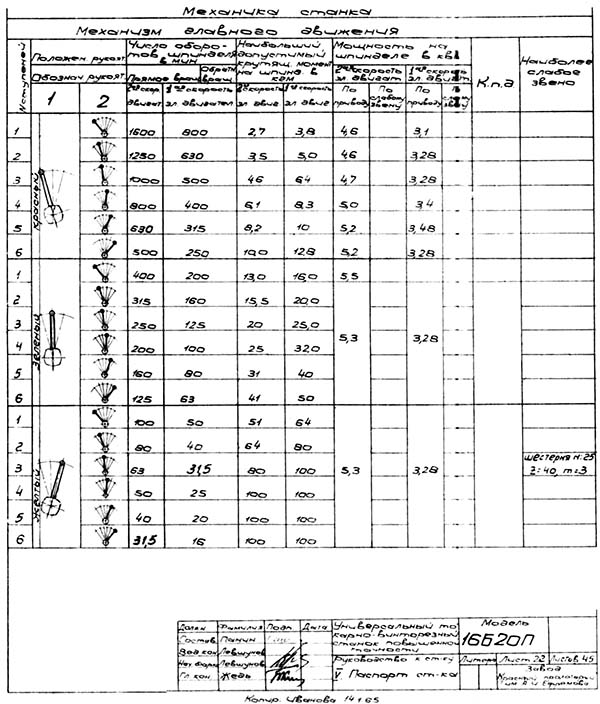 Механика станка
Механизм главного движения
№ ступеней
Положен рукоят.
Обознач рукоят.
1 2
Число оборотов шпинделя в мин
Прямое вращ
Обратн вращ
2ая скор двигат
1ая скорость эл двигател
Наибольший допустимый крутящ. момент на шпинд. в кгм
2я скорость эл двиг
1я скорость эл двиг
Мощность на шпинделе в квт
2ая скорость эл двигат
1ая скорость эл двигат
По приводу
По слабому звену
По приводу
По слабому звену
К.п.д
Наиболее слабое звено
Красный
1 1600 800 2,7 3,8 4,6 3,1
2 1250 630 3,5 5,0 4,6 3,28
3 1000 500 46 64 4,7 3,28
4 800 400 6,1 8,3 5,0 3,4
5 630 315 8,2 10 5,2 3,48
6 500 250 10,0 12,8 5,2 3,28
Зеленый
1 400 200 13,0 16,0 5,5
2 315 160 15,5 20,0
3 250 125 20 25,0
5,3 3,28
4 200 100 25 32,0
5 160 80 31 40
6 125 63 41 50
Желтый
1 100 50 51 64
2 80 40 64 80
3 63 31,5 80 100 5,3 3,28
шестерня н:25
z=40, m=3
4 50 25 100 100
5 40 20 100 100
6 31,5 16 100 100
Должн Фамилия Подп. Дата
Состав. Панин
Вед кон Левшунов
Нач бюро Левшунов
Гл. кон Жедь
Универсальный токарно-винторезный станок повышенной точности
Модель
16Б20П
Руководство к ст-ку
Литера Лист 22 Листов 45
V Паспорт ст-ка
Завод
Красный пролетарий
им А.И. Ефремова
Копир. Иванова 14 I 65